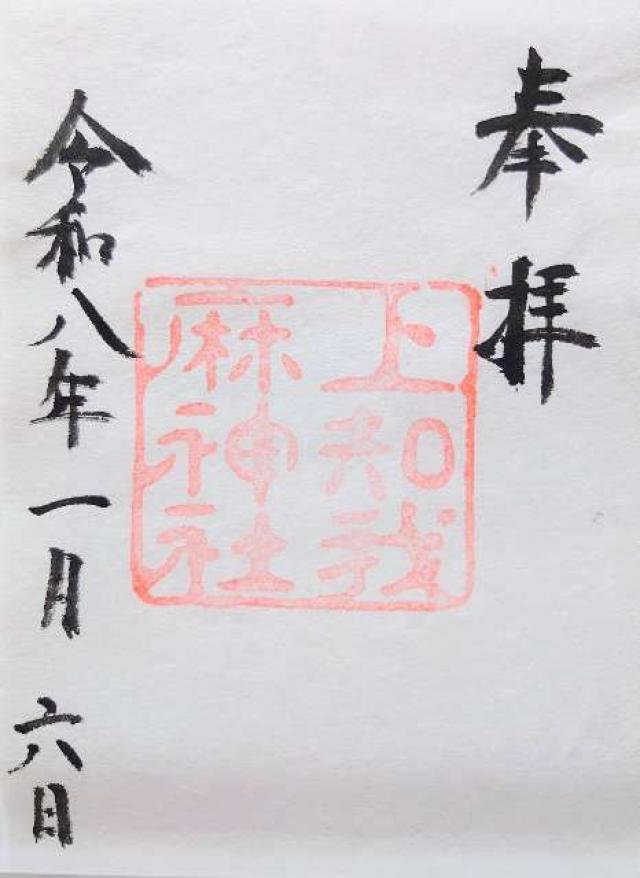 奉拝
上知我
麻神社
令和八年一月六日